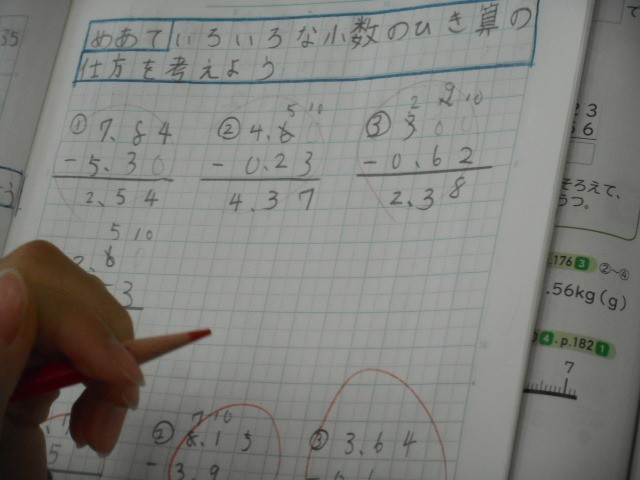 めあて いろいろな小数のひき算の
仕方を考えよう
5 10
2 9 10
① 7.84
② 4.6
③ 3 0 0
- 5.30
- 0.23
- 0.62
2.54
4.37
2.38
5 10
6
3
7 10
② 8.15
③ 3.64
- 3.9
5
35
う
3
6
そろえて、
うつ。
.176 3 ②~④
.56kg(g)
4・p.182 1
7